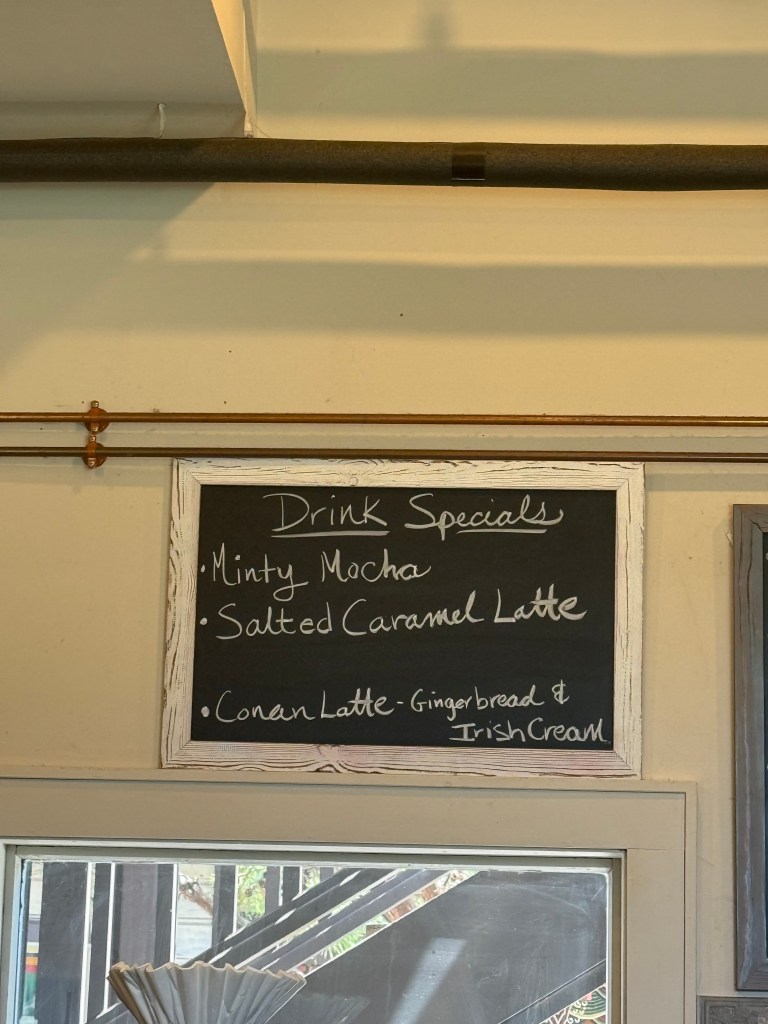 Drink Specials
• Minty Mocha
• Salted Caramel Latte
• Conan Latte - Gingerbread &
Irish Cream